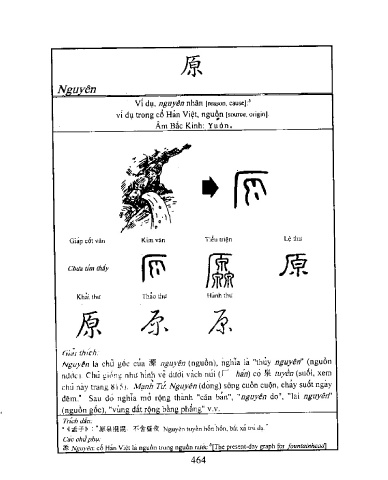 原
Nguyên
Ví dụ, nguyên nhân [reason, cause];
ví dụ trong cổ Hán Việt, nguồn [source, origin].
Âm Bắc Kinh: Yuán.
Giáp cốt văn Kim văn Tiểu triện Lệ thư
Chưa tìm thấy
原
Khải thư Thảo thư Hành thư
原 原 原
Giải thích:
Nguyên là chủ gốc của 源 nguyên (nguồn), nghĩa là "thủy nguyên" (nguồn
nước). Chữ giống như hình vẽ dưới vách núi (厂 hán) có 泉 tuyền (suối, xem
chữ này trang 815). Mạnh Tử: Nguyên (dòng) sông cuồn cuộn, chảy suốt ngày
đêm." Sau đó nghĩa mở rộng thành "căn bản", "nguyên do", "lai nguyên"
(nguồn gốc), "vùng đất rộng bằng phẳng" v.v.
Trích dẫn:
《孟子》: "原泉混混, 不舍昼夜 Nguyên tuyền hồn hồn, bất xả trú dạ."
Các chữ phụ:
源 Nguyên: cổ Hán Việt là nguồn trong nguồn nước [The present-day graph for fountainhead]
464